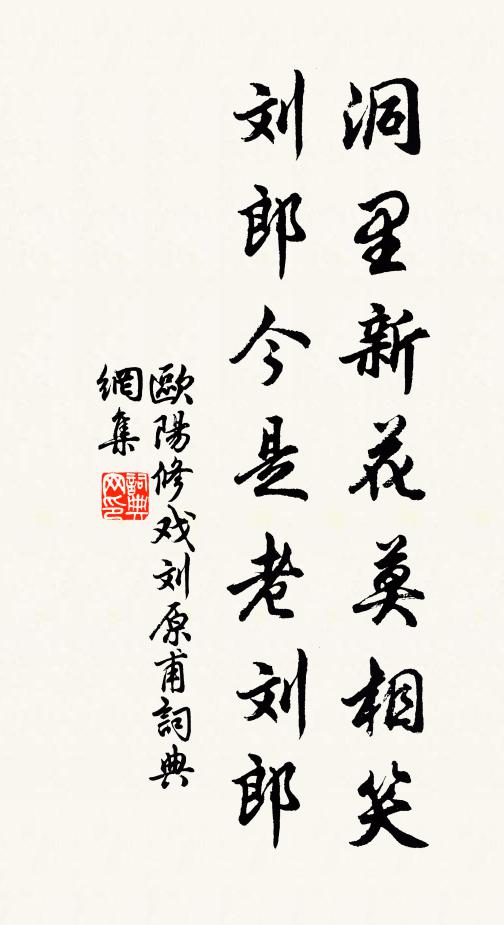 洞里新花莫相笑
刘郎今是老刘郎
歐陽修戏刘原甫詞典
網集
詞典
网印